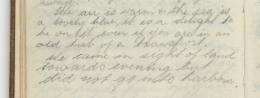 the air is warm & the sea is
a lovely blue, it is a delight to
be on it even if you are in an
old hut of a
We came in sight of land
towards evening but
did not go into harbour.